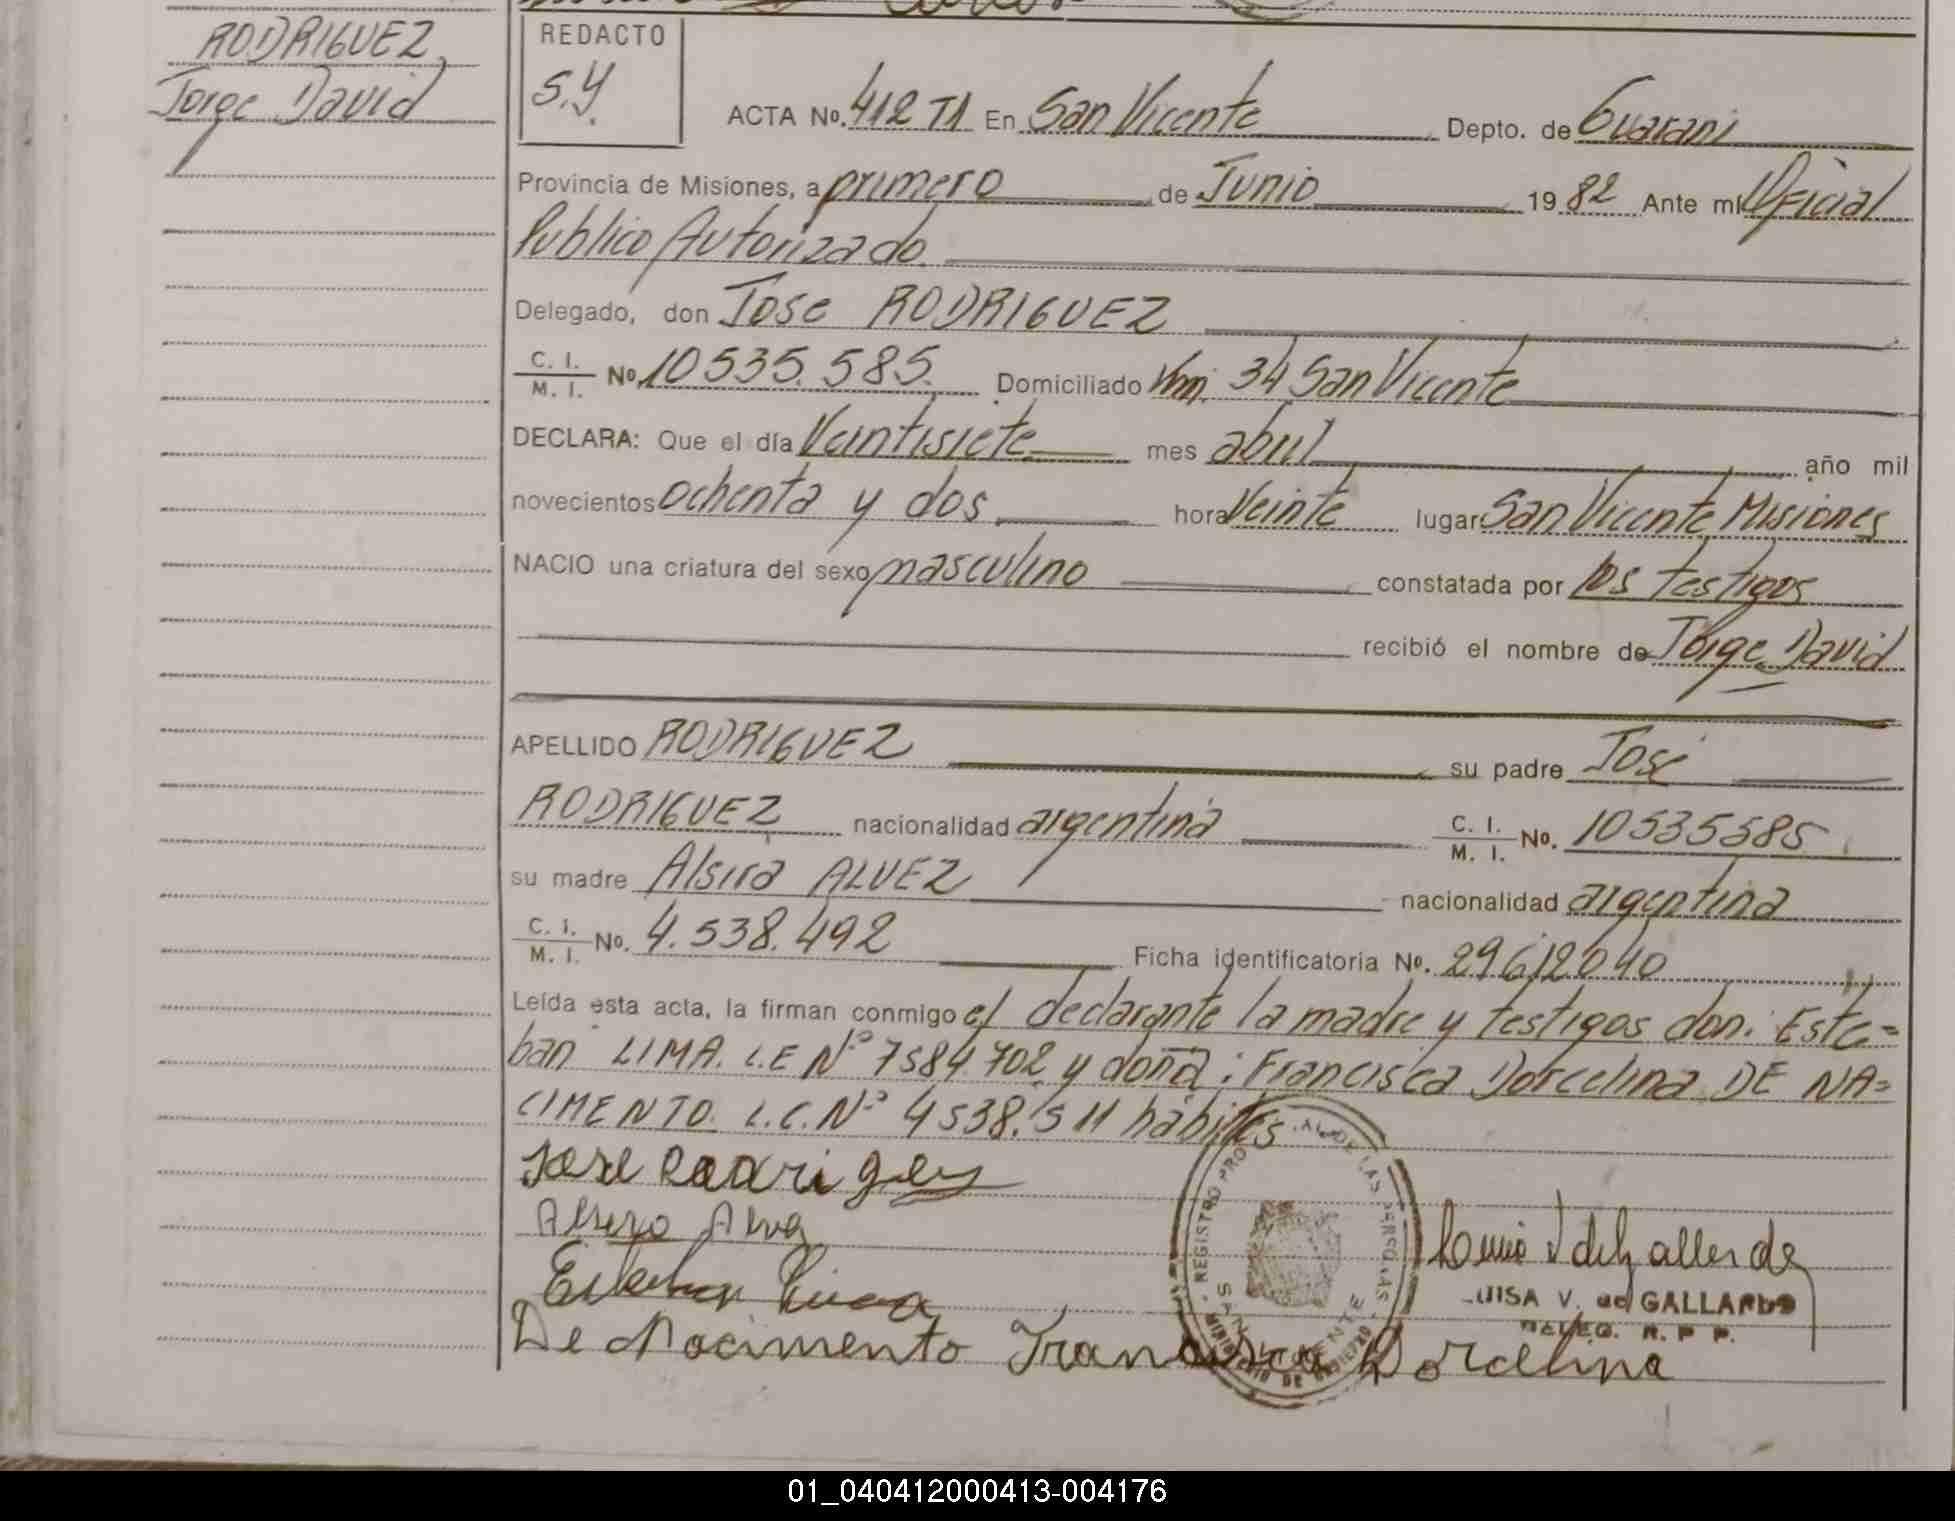 RODRIGUEZ
Jorge David
REDACTO
S.Y.
ACTA No. 412 T1 En San Vicente Depto. de Guarani
Provincia de Misiones, a primero de Junio 1982 Ante mí Oficial
Publico Autorizado.
Delegado, don Jose RODRIGUEZ
C. I.
M. I. No. 10535.585. Domiciliado Km. 34 San Vicente
DECLARA: Que el día Veintisiete mes abril año mil
novecientos ochenta y dos hora Veinte lugar San Vicente Misiones
NACIO una criatura del sexo masculino constatada por los testigos
recibió el nombre de Jorge David
APELLIDO RODRIGUEZ su padre José
RODRIGUEZ nacionalidad argentina C. I.
M. I. No. 10535585
su madre Alsira ALVEZ nacionalidad argentina
C. I.
M. I. No. 4.538.492 Ficha identificatoria No. 29612040
Leída esta acta, la firman conmigo el declarante la madre y testigos don: Este=
ban LIMA. L.E Nº 7584.702 y doña: Francisca Dorcelina DE NA=
CIMENTO. L.C. Nº 4538.511 hábiles
Jose Rodrigez
Esteban Lima
LUISA V. de GALLARDO
DELEG. R. P P.
De Nacimento Francisca Dorcelina
REGISTRO PROV DE LAS PERSONAS
SAN VICENTE
MINISTERIO DE GOBIERNO
01_040412000413-004176